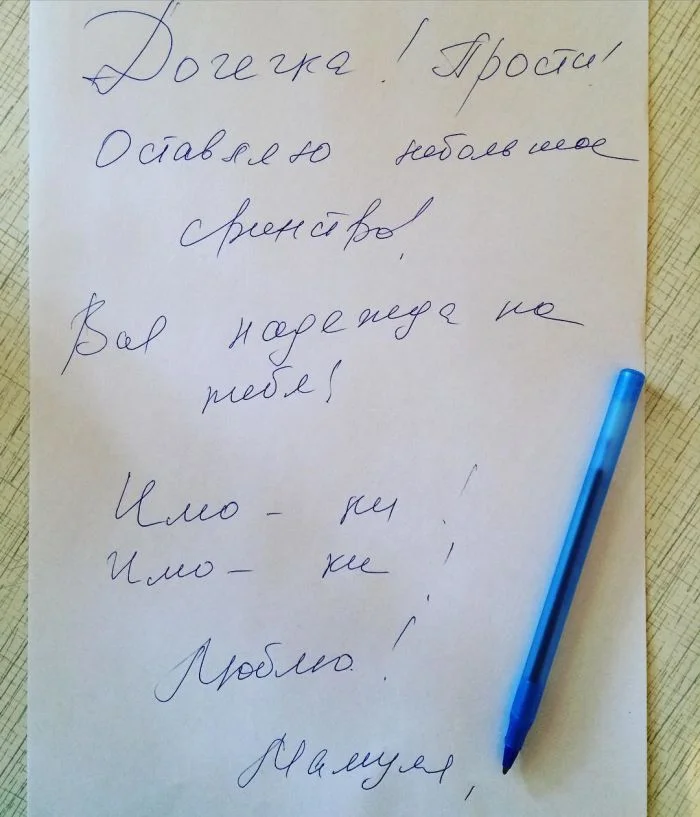 Дочечка! Прости!
Оставляю небольшое
свинство!
Вся надежда на
тебя!
Чмо-ки!
Чмо-ки!
Люблю!
Мамуля,